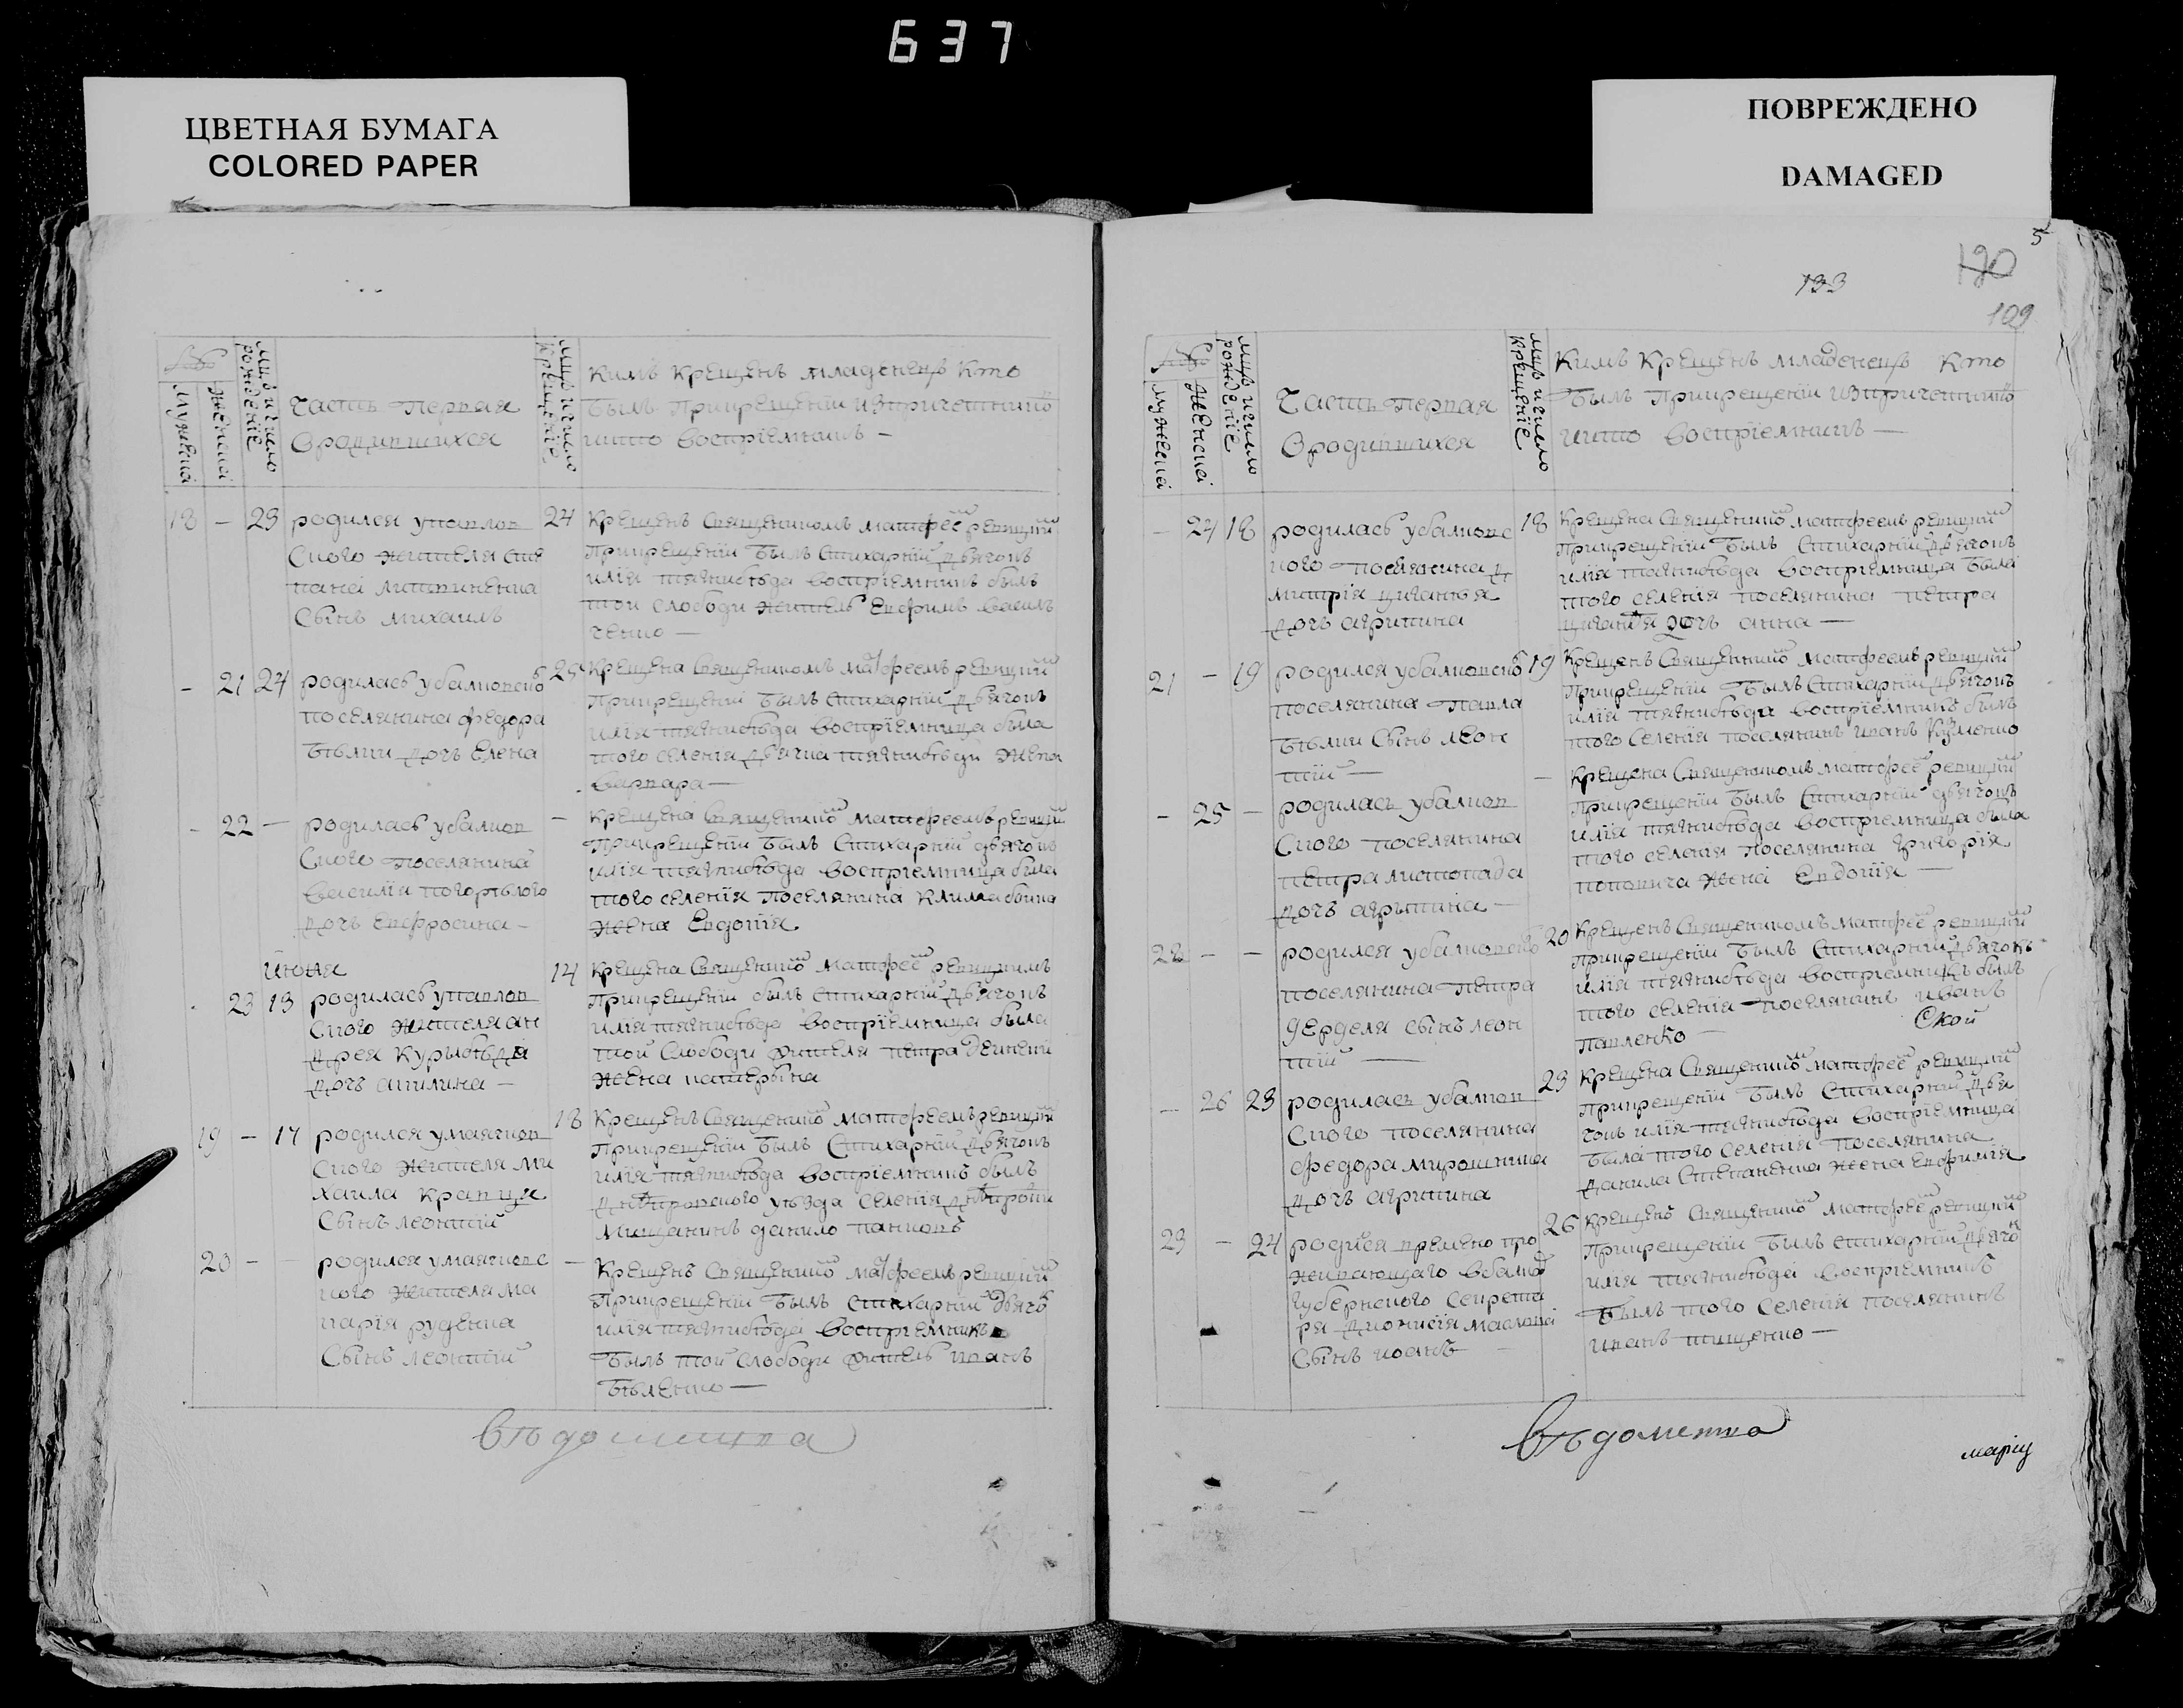 637
ЦВЕТНАЯ БУМАГА
COLORED PAPER
ПОВРЕЖДЕНО
DAMAGED
5
120
133
109
№
мужеска
женска
мцъ и число
рождение
Часть первая
О родившихся
мцъ и число
крещение
Кимъ крещенъ младенецъ кто
былъ при крещении из причетнико
и кто восприемникъ —
18 — 23 родился у павлов
ского жителя сте
пана литвиненка
сынъ михаилъ
24 Крещенъ Священикомъ матфее ревуцкий
при крещении былъ стихарний дьячокъ
илия тягнибѣда восприемникъ былъ
той слободи житель Ефимъ василь
ченко —
- 21 24 родиласъ у балковско
поселянина федора
бѣлии дочъ Елена
25 Крещена Священикомъ матфеемъ ревуцкий
при крещении былъ стихарний дьячокъ
илия тягнибѣда восприемница была
того селения дьячка тягнибѣди жена
варвара —
- 22 — родиласъ у балков
ского поселянина
василия погорѣлого
дочъ Евфросина —
— Крещена Священико матфеемъ ревуцкий
при крещении былъ стихарний дьячокъ
илия тягнибѣда восприемница была
того селения поселянина Клима бойка
жена Евдокия
июня
23 13 родиласъ у павлов
ского жителя ан
дрея Курыбѣда
дочъ акилина —
14 Крещена Священико матфее ревуцкимъ
при крещении былъ стихарний дьячокъ
илия тягнибѣда восприемница была
той слободи жителя петра дейнеки
жена катерына
19 — 17 родился у маячков
ского жителя ми
хаила кравця
сынъ леонтий
18 Крещенъ Священико матфеемъ ревуцкий
при крещении былъ стихарний дьячокъ
илия тягнибѣда восприемникъ былъ
днѣпровского уѣзда селения днѣпровки
мищанинъ данило панковъ
20 — — родился у маячковс
кого жителя ма
кария руденка
сынъ леонтий
— Крещенъ Священико матфеемъ ревуцкий
при крещении былъ стихарний дьячо
илия тягнибѣда восприемникъ
былъ той слободи житель иванъ
бѣленко —
вѣдомства
№
мужеска
женска
мцъ и число
рождение
Часть первая
О родившихся
мцъ и число
крещение
Кимъ Крещенъ младенецъ Кто
былъ при крещении из причетнико
и кто восприемникъ —
- 24 18 родиласъ у балковс
кого поселянина д
митрия циганка
дочъ агрипина
18 Крещена Священико матфеемъ ревуцкий
при крещении былъ стихарний дьячокъ
илия тягнибѣда восприемница была
того селения поселянина петра
дочъ анна —
21 — 19 родился у балковско
поселянина павла
бѣлии сынъ леон
тий —
19 Крещенъ Священико матфеемъ ревуцкий
при крещении былъ стихарний дьячокъ
илия тягнибѣда восприемникъ былъ
того селения поселянинъ иванъ Кузменко
- 25 — родиласъ у балков
ского поселянина
петра листопада
дочъ агрыпина —
— Крещена Священикомъ матфее ревуцкий
при крещении былъ стихарний дьячокъ
илия тягнибѣда восприемница была
того селения поселянина григория
поповича жена Евдокия —
22 — — родился у балковско
поселянина петра
дерделя сынъ леон
тий —
20 Крещенъ Священикомъ матфее ревуцкий
при крещении былъ стихарний дьячокъ
илия тягнибѣда восприемникъ былъ
того селения поселянинъ иванъ
павленко —
Ской
- 26 23 родиласъ у балков
ского поселянина
федора мирошника
дочъ агрипина
23 Крещена Священико матфее ревуцкий
при крещении былъ стихарний дья
чокъ илия тягнибѣда восприемница
была того селения поселянина
данила степаненка жена Евфимия
23 — 24 родися времено про
живающаго в балко
губернского секрета
ря дионисия маслова
сынъ иоанъ —
26 Крещенъ Священико матфее ревуцкий
при крещении былъ стихарний дьячо
илия тягнибѣда восприемникъ
былъ того селения поселянинъ
иванъ тищенко —
вѣдомства